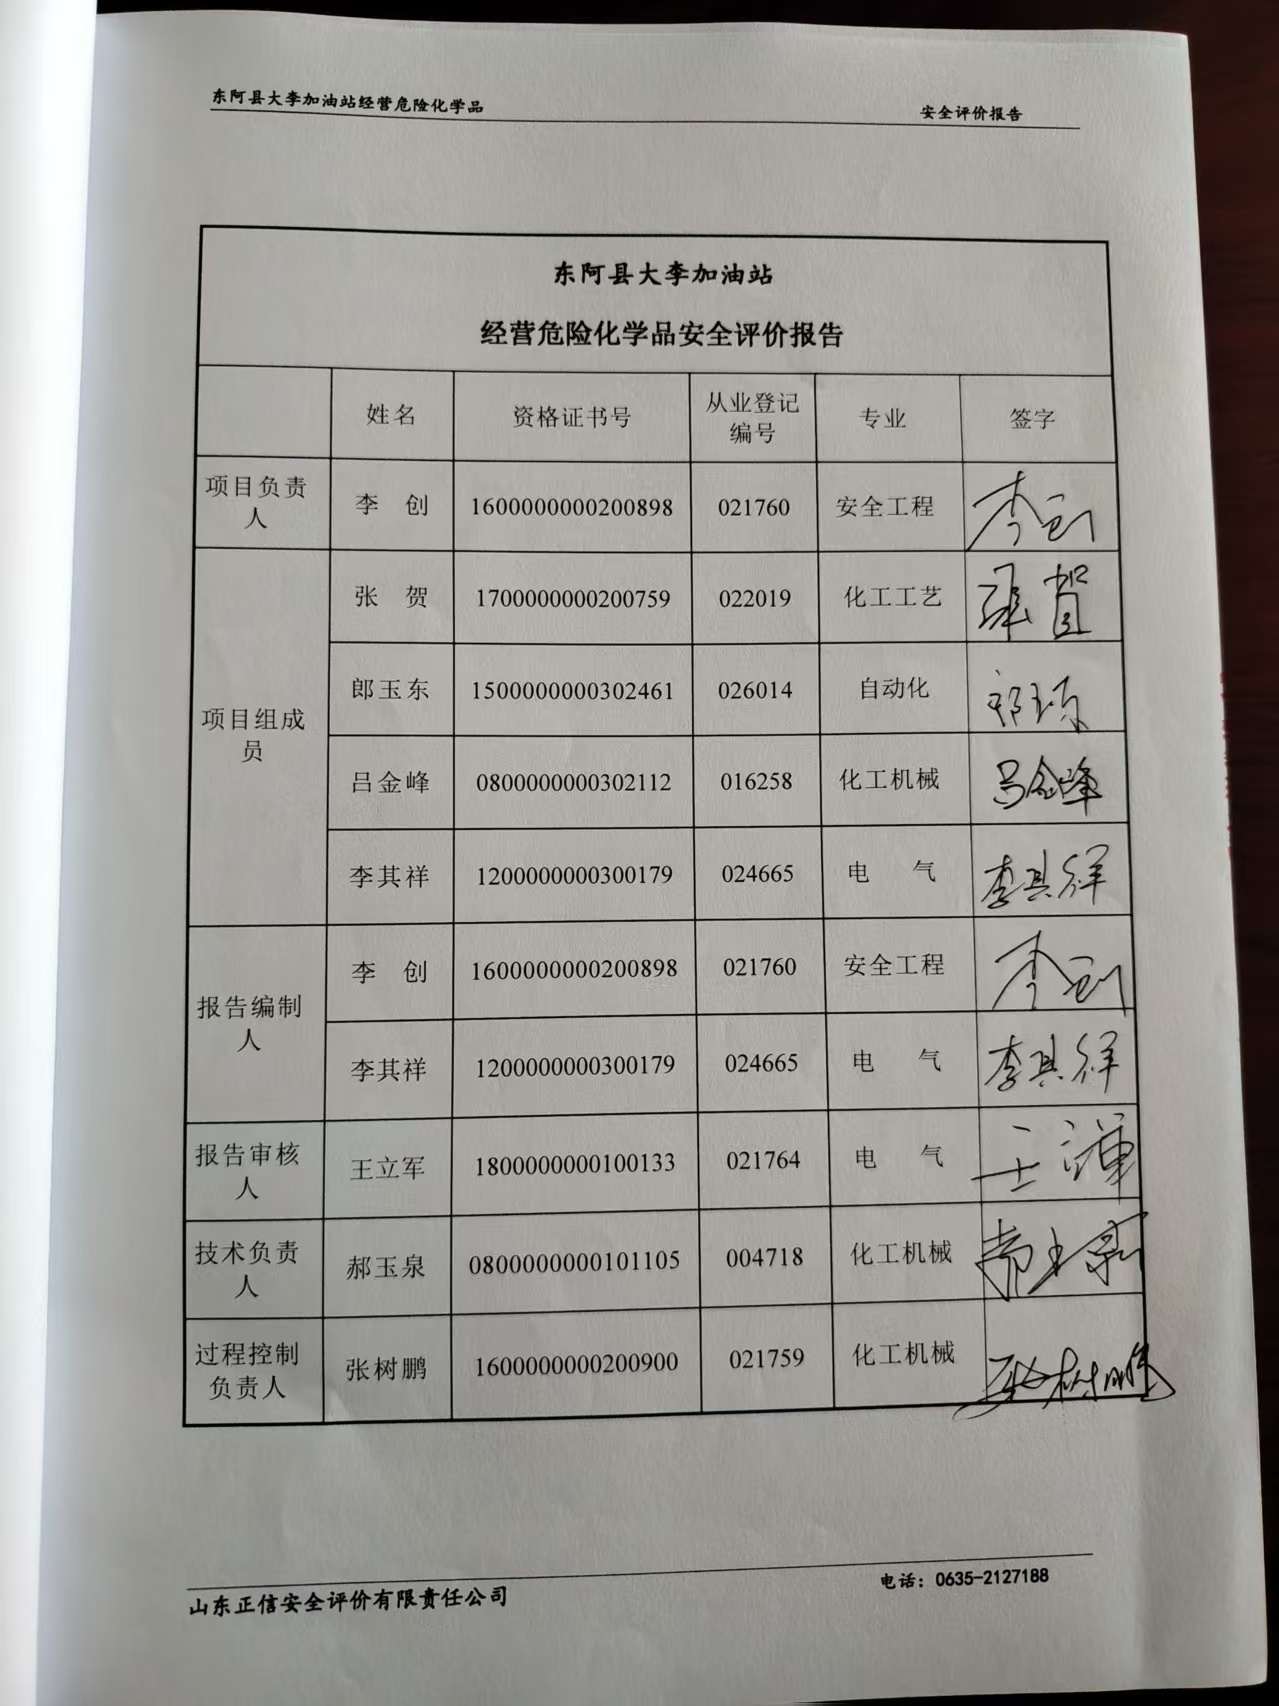 东阿县大李加油站经营危险化学品 安全评价报告
东阿县大李加油站
经营危险化学品安全评价报告
姓名 资格证书号 从业登记编号 专业 签字
项目负责人 李 创 1600000000200898 021760 安全工程 李创
项目组成员 张 贺 1700000000200759 022019 化工工艺 张贺
郎玉东 1500000000302461 026014 自动化 郎玉东
吕金峰 0800000000302112 016258 化工机械 吕金峰
李其祥 1200000000300179 024665 电 气 李其祥
报告编制人 李 创 1600000000200898 021760 安全工程 李创
李其祥 1200000000300179 024665 电 气 李其祥
报告审核人 王立军 1800000000100133 021764 电 气 王立军
技术负责人 郝玉泉 0800000000101105 004718 化工机械 郝玉泉
过程控制负责人 张树鹏 1600000000200900 021759 化工机械 张树鹏
山东正信安全评价有限责任公司 电话：0635-2127188